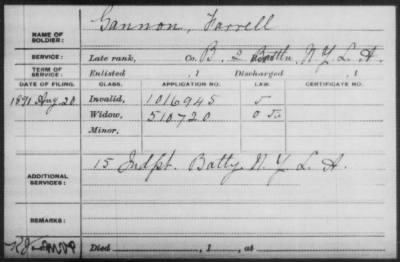 NAME OF SOLDIER: Gannon, Farrell
SERVICE: Late rank, Co. B, 2 Battn N.Y. L. A.
TERM OF SERVICE: Enlisted , 1 Discharged , 1
DATE OF FILING. CLASS. APPLICATION NO. LAW. CERTIFICATE NO.
1891 Aug. 20 Invalid, 1016945
Widow, 510720
Minor,
ADDITIONAL SERVICES: 15 Indpt. Batty N.Y. L. A.
REMARKS:
Died , 1 , at